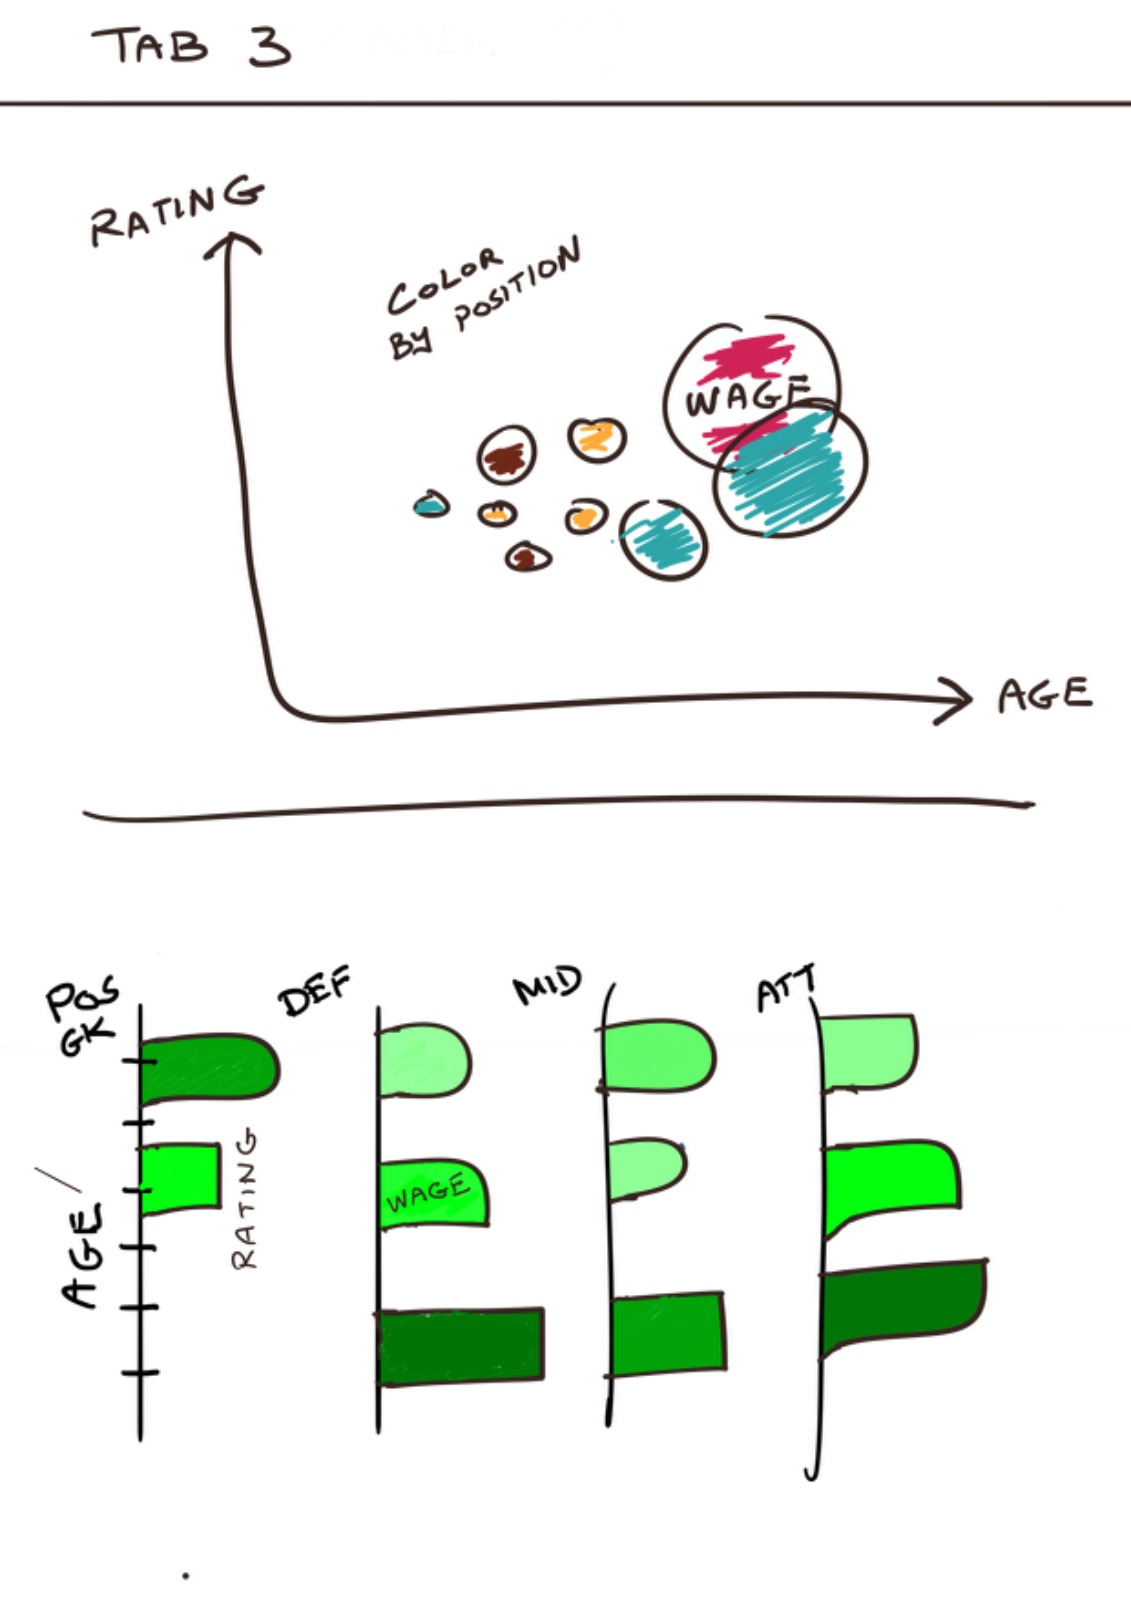 TAB 3
RATING
COLOR
BY POSITION
WAGE
AGE
POS
GK
DEF
MID
ATT
WAGE
RATING
AGE